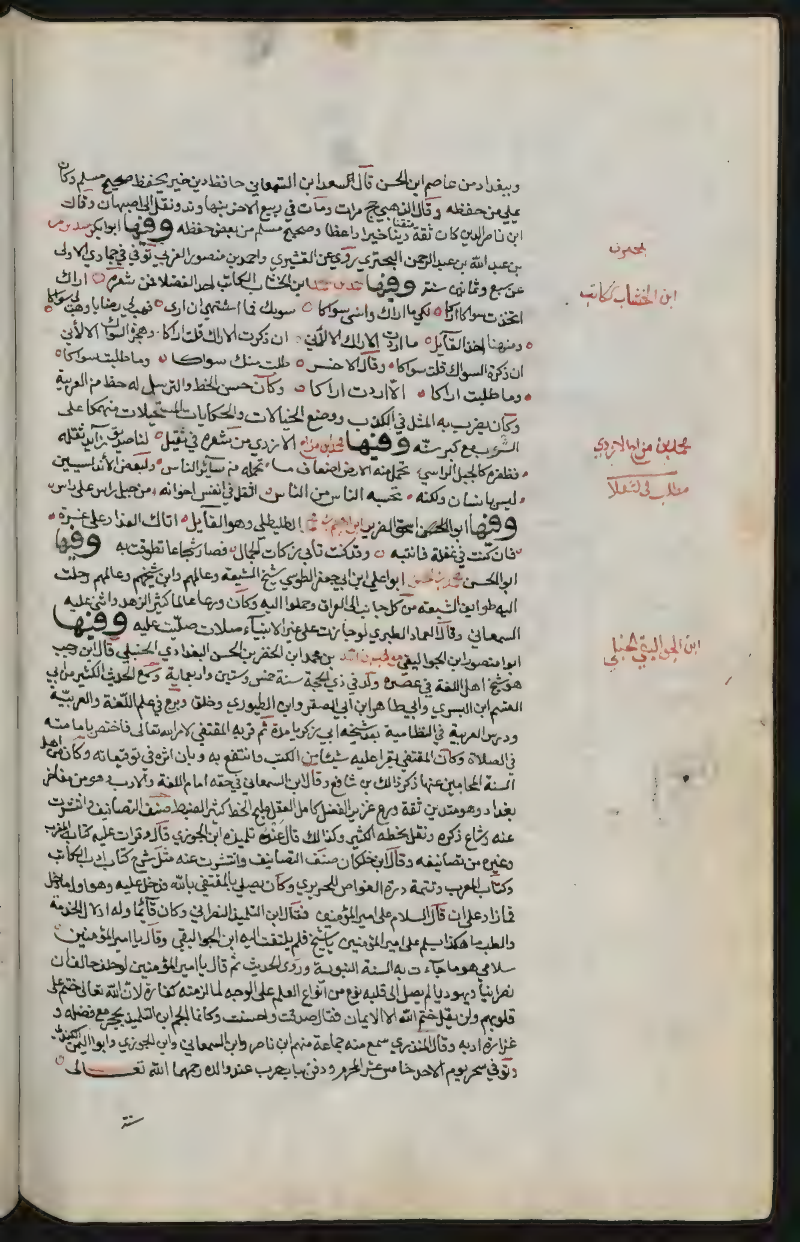 وببغداد من عاصم ابن الحسن قال السعد ابن السمعاني حافظ دين خير يحفظ صحيح مسلم وكان
يملي من حفظه وقال الذهبي حج مرات ومات في ربيع الاخر بنهاوند ونقل الى اصبهان وقال
ابن ناصر الدين كان ثقة متقنا دينا خيرا واعظا وصحيح مسلم من بعض حفظه وفيها ابو بكر
بن عبد الله بن عبد الرحمن البحتري روى عن القشيري واحمد بن منصور المغربي توفي في جمادي الاولى
عن سبع وثمانين سنة وفيها ابن الخشاب الكاتب احد الفضلا فمن شعره اراك
اتخذت سواكا اراكا لكي ما اراك وانسى سواكا سواك فما اشتهي ان ارى فهب لي رضابا وهب لي سواكا
ومنهنا اخذ القايل ما اردت الاراك الا لأني ان ذكرت الاراك قلت اراكا وهجرت السواك الا لأني
ان ذكرت السواك قلت سواكا وقال الاخر طلبت منك سواكا وما طلبت سواكا
وما طلبت اراكا الا اردت اراكا وكان حسن الخط والترسل له حظ من العربية
وكان يضرب به المثل في الكذب ووضع الخيالات والحكايات المستحيلات منهمكا على
الشرب مع كبر سنه وفيها محمد بن مراح الازدي من شعره في ثقيل لنا صديق زايد ثقله
فظفره كالجبل الراسي تحمل منه الارض اضعاف ما تحمله من سائر الناس ولبعض الأندلسيين
ليس بانسان ولكنه تحسبه الناس من الناس اثقل في انفس اخوانه من جبل راس على راس
وفيها ابو الحسن الطليطلي وهو القايل اتاك العذار على غرة
فان كنت في غفلة فانتبه وقد كنت تأبى زكات الجمال فصار شجاعا تطوقت به وفيها
ابو الحسن محمد بن الحسن ابو اعلي ابن ابي جعفر الطوسي شيخ الشيعة وعالمهم وابن شيخهم وعالمهم رحلت
اليه طوايف الشيعة من كل جانب الى العراق وحملوا اليه وكان ورعا عالما كثير الزهد واثنى عليه
السمعاني وقال العماد الطبري لو جازت على غير الانبياء صلات صليت عليه وفيها
ابو منصور ابن الجواليقي موهوب بن احمد بن محمد ابن الخضر بن الحسن البغدادي الحنبلي قال ابن رجب
هو شيخ اهل اللغة في عصره ولد في ذي الحجة سنة خمس وستين واربعماية وسمع الحديث الكثير من ابي
القسم ابن البسري وابي طاهر ابن ابي الصقر وابن الطيوري وخلق وبرع في علم اللغة والعربية
ودرس العربية في النظامية بعد شيخه ابي زكريا مدة ثم قربه المقتفي لامر الله تعالى فاختص بامامته
في الصلاة وكان المقتفي يقرا عليه شيئا من الكتب وانتفع به وبان اثره في توقيعاته وكان من اهل
السنة المحامين عنها ذكر ذالك بن شافع وقال ابن السمعاني في حقه امام اللغة والادب وهو من مفاخر
بغداد وهو متدين ثقة ورع غزير الفضل كامل العقل مليح الخط كثير الضبط صنف التصانيف وانتشرت
عنه وشاع ذكره ونقل بخطه الكثير وكذالك قال عنه تلميذه ابن الجوزي قال وقرات عليه كتاب المعرب
وغيره من تصانيفه وقال ابن خلكان صنف التصانيف وانتشرت عنه مثل شرح كتاب ادب الكاتب
وكتاب المعرب وتتمة درة الغواص للحريري وكان يصلي بالمقتفي بالله فدخل عليه وهو اول ما دخل
فما زاد على ان قال السلام على امير المؤمنين فقال ابن التلميذ النصراني وكان قائما وله ادلال الخدمة
والطب ما هكذا يسلم على امير المؤمنين يا شيخ فلم يلتفت اليه ابن الجواليقي وقال يا امير المؤمنين
سلامي هو ما جاءت به السنة النبوية وروى الحديث ثم قال يا امير المؤمنين لو حلف حالف ان
نصرانيا ويهوديا لم يصل الى قلبه نوع من انواع العلم على الوجه لما لزمته كفارة لان الله تعالى ختم على
قلوبهم ولن يفك ختم الله الا الايمان فقال صدقت واحسنت وكانما الجم ابن التلميذ بحجر مع فضله و
غزارة ادبه وقال المنذري سمع منه جماعة منهم ابن ناصر وابن السمعاني وابن الجوزي وابو اليمن الكندي
وتوفي سحر يوم الاحد خامس عشر المحرم ودفن بباب حرب عند والده رحمهما الله تعالى
ابن الخشاب كاتب
محمد بن مراح الازدي
مطلب في الثقلا
ابن الجواليقي الحنبلي
سنة